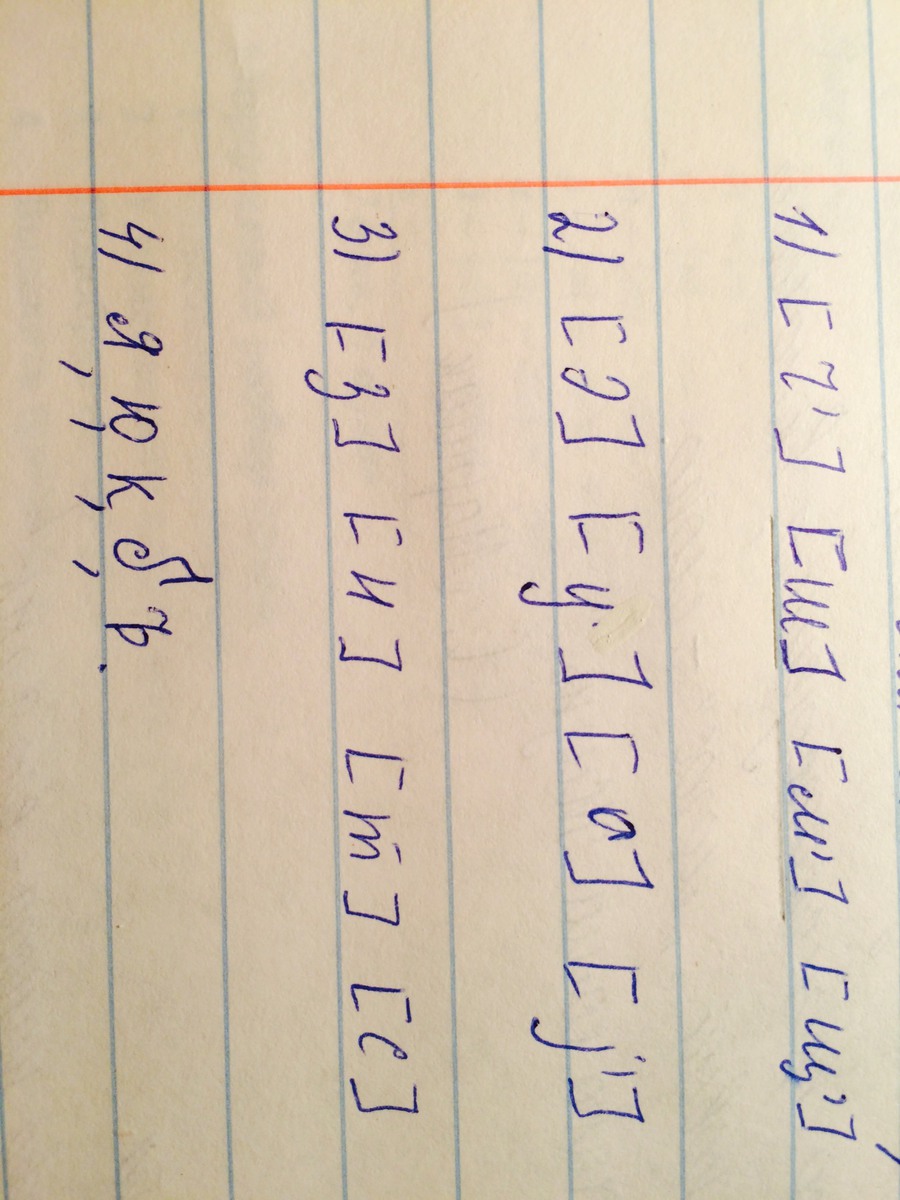 1) [ч'] [ш] [м'] [щ']
2) [э] [у] [а] [j']
3) [з] [и] [т] [с]
4) я, ю, к, б, ъ.